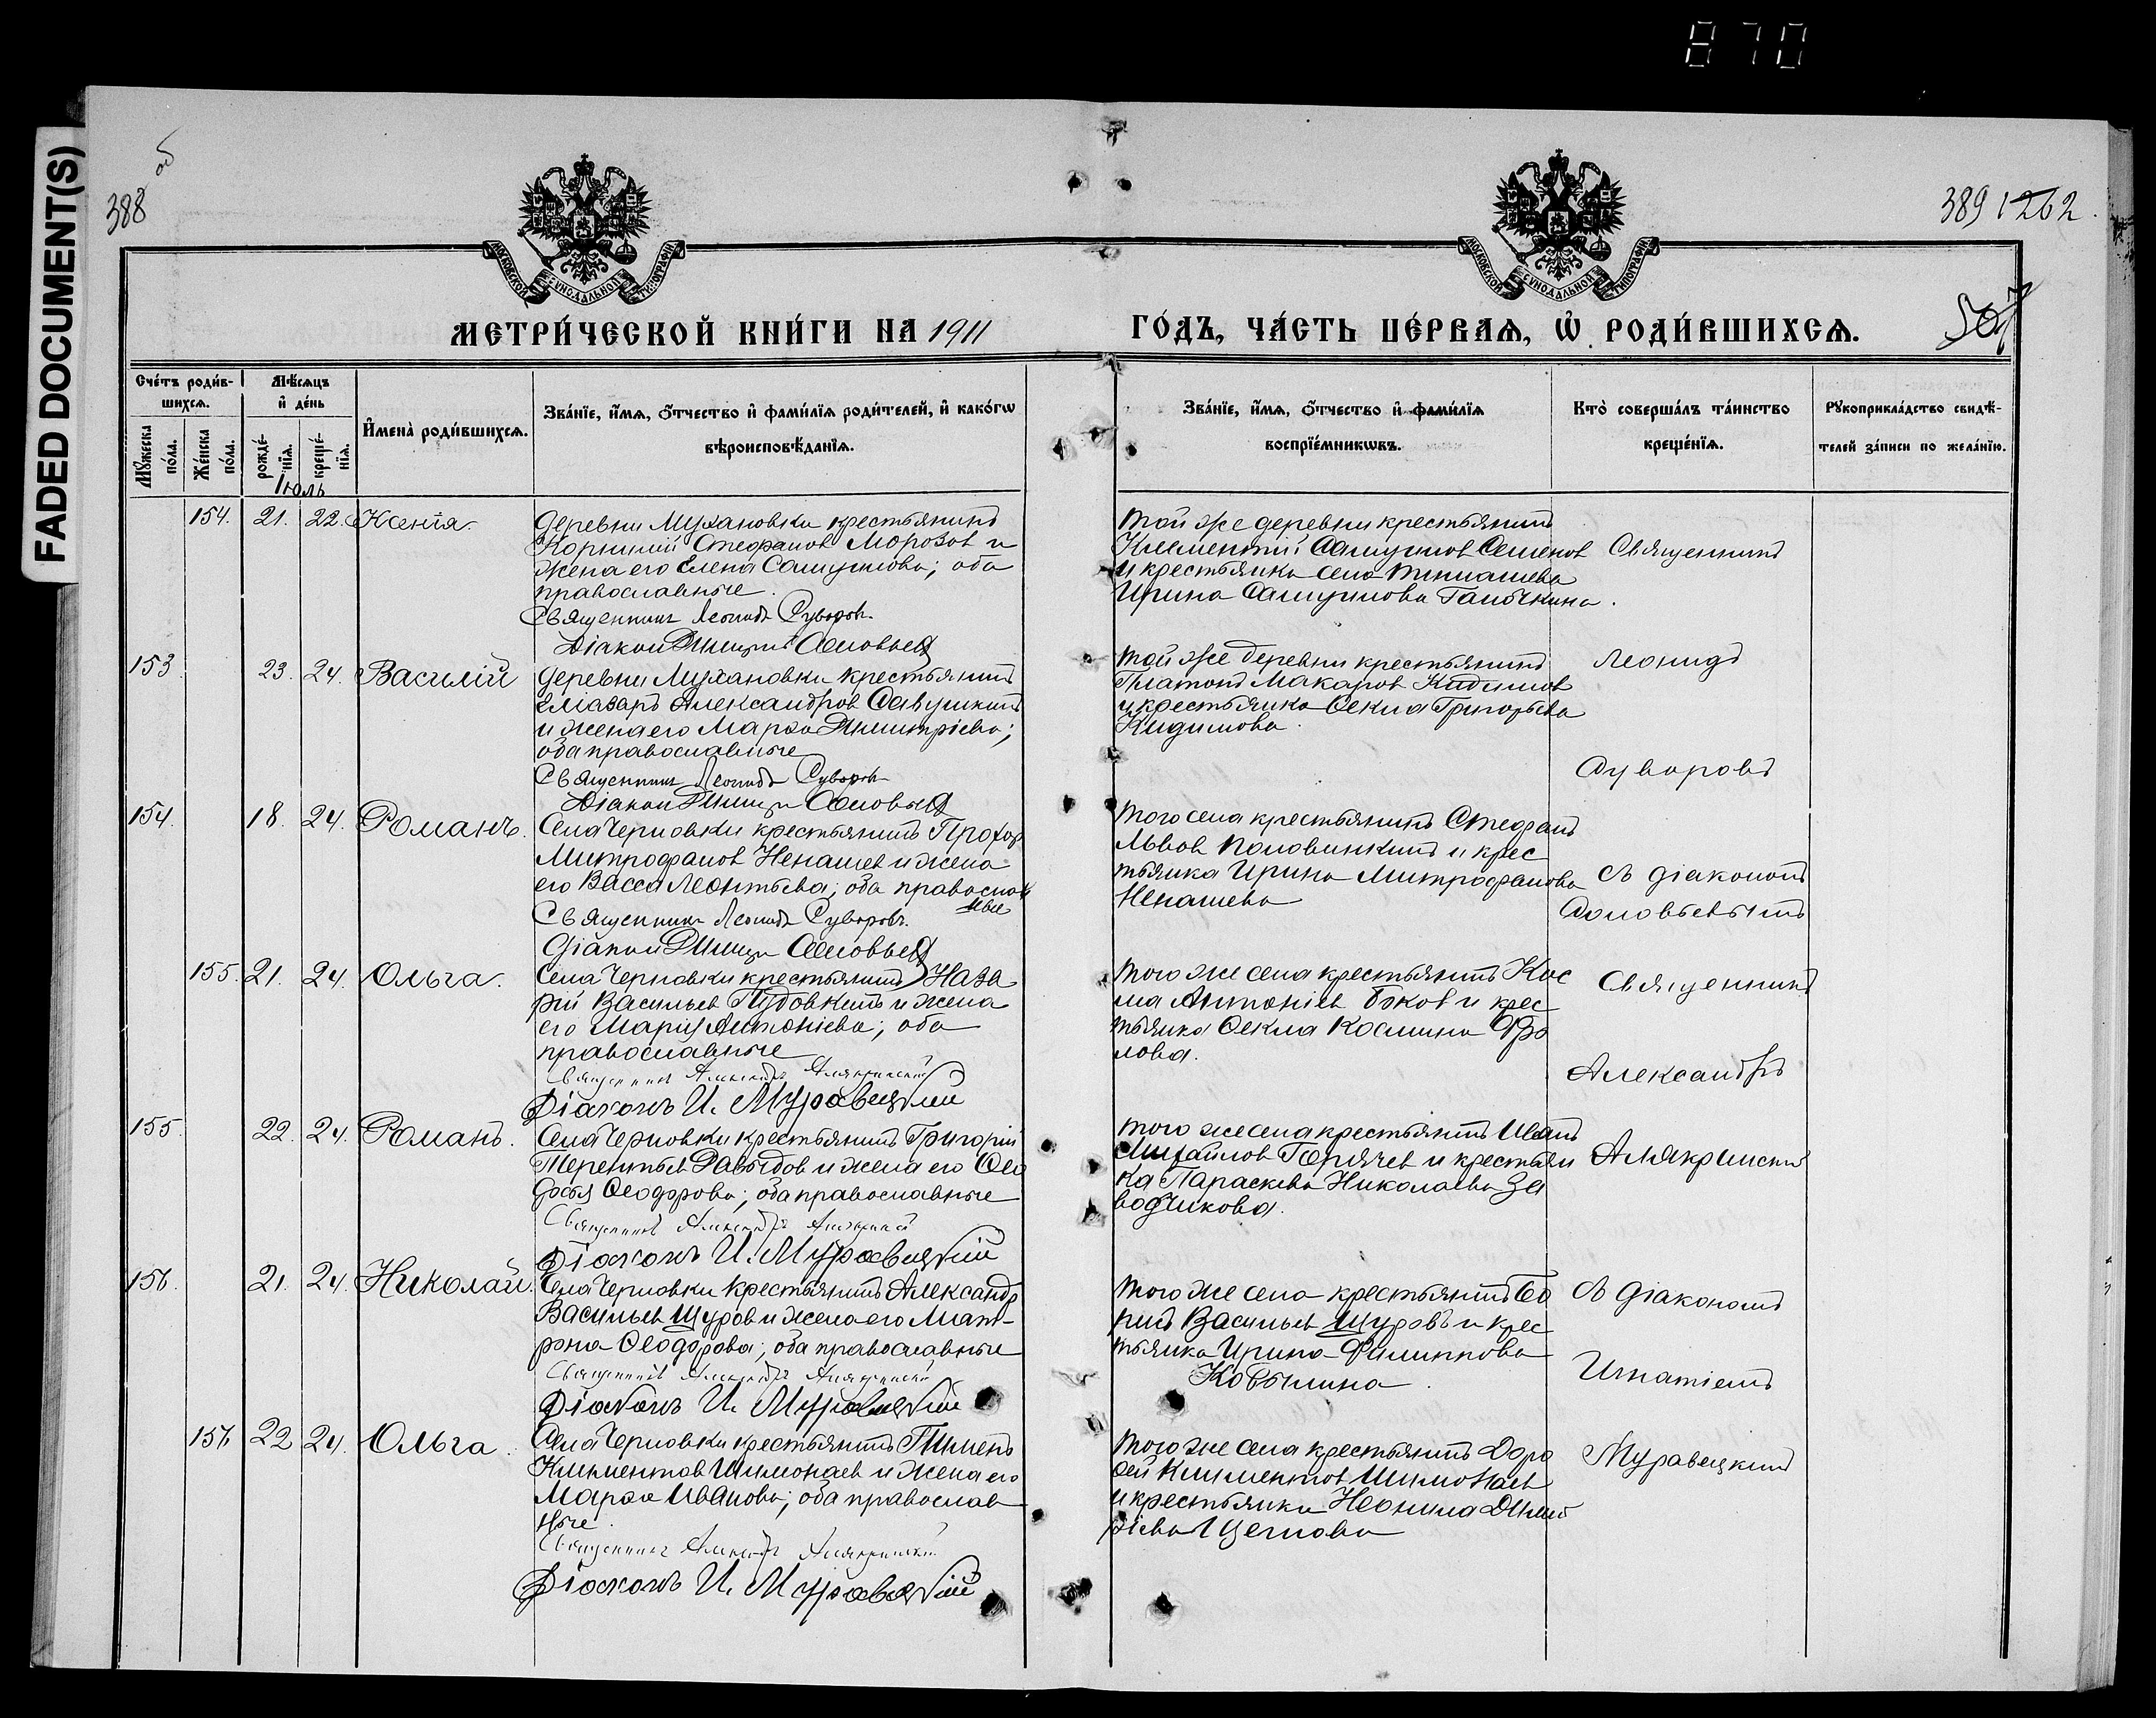 870
FADED DOCUMENT(S)
388 об
389 1262.
МОСКОВСКОЙ СѴНОДАЛЬНОЙ ТИПОГРАФІИ
МОСКОВСКОЙ СѴНОДАЛЬНОЙ ТИПОГРАФІИ
МЕТРИ́ЧЕСКОЙ КНИ́ГИ НА 1911
ГО́ДЪ, ЧА́СТЬ ПЕ́РВАѦ, Ѽ РОДИ́ВШИХСѦ.
Сче́тъ роди́в-
шихсѧ.
Мѣ́сѧцъ
и҆ де́нь
Мꙋ́жеска
по́ла.
Же́нска
по́ла.
рожде́-
нїѧ.
креще́-
нїѧ.
И҆мена̀ роди́вшихсѧ.
Зва́нїе, и҆́мѧ, ѻ҆́тчество и҆ фами́лїѧ роди́телей, и҆ како́гѡ
вѣроисповѣ́данїѧ.
Зва́нїе, и҆́мѧ, ѻ҆́тчество и҆ фами́лїѧ
воспрїе́мникѡвъ.
Кто̀ соверша́лъ та́инство
креще́нїѧ.
Рꙋкоприкла́дство свидѣ́-
телей за́писи по жела́нїю.
Іюль
154. 21. 22. Ксенія.
Деревни Мухановки крестьянинъ
Корнилій Стефанов Морозов и
жена его Елена Самуилова; оба
православные.
Священникъ Леонидъ Суворовъ.
Діакон Димитрій Соловьев
Той же деревни крестьянинъ
Климентій Самуилов Семенов
и крестьянка села
Ирина Самуилова Галочкина.
Священникъ
153 23. 24. Василій
Деревни Мухановки крестьянинъ
Назаръ Александров Савушкинъ
и жена его Марѳа Димитріева;
оба православные
Священникъ Леонидъ Суворовъ
Діакон Димитрій Соловьев
Той же деревни крестьянинъ
Платонъ Макаров Кидимов
и крестьянка Ѳекла Григорьева
Кидимова.
Леонидъ
Суворовъ
154. 18. 24. Романъ.
Села Черновки крестьянинъ Прохор
Митрофанов Ненашев и жена
его Васса Леонтьева; оба православ
ные
Священникъ Леонидъ Суворовъ.
Діакон Димитрій Соловьев
Того села крестьянинъ Стефанъ
Львов Половинкинъ и крес
тьянка Ирина Митрофанова
Ненашева
съ діакономъ
Соловьевымъ
155. 21. 24. Ольга.
Села Черновки крестьянинъ Наза
рій Васильев Пудовкинъ и жена
его Марія Антоніева; оба
православные
Священникъ Александръ Алякринскій
Діаконъ И. Муравецкій
Того же села крестьянинъ Кос
ма Антоніев Быков и крес
тьянка Ѳекла Космина Фро
лова.
Священникъ
Александръ
155. 22. 24. Романъ.
Села Черновки крестьянинъ Григорій
Терентьев Давыдов и жена его Ѳео
досія Ѳеодорова; оба православные
Священникъ Александръ Алякринскій
Діаконъ И. Муравецкій
Того же села крестьянинъ Иванъ
Михайлов Горячев и крестьян
ка Параскева Николаева За
водчикова.
Алякринскій
156. 21. 24. Николай.
Села Черновки крестьянинъ Александр
Васильев Щуров и жена его Мат-
рона Ѳеодорова; оба православные
Священникъ Александръ Алякринскій
Діаконъ И. Муравецкій
Того же села крестьянинъ Бо
рисъ Васильев Щуровъ и крес
тьянка Ирина Филиппова
Кобылина.
съ діакономъ
Игнатіемъ
156 22 24. Ольга.
Села Черновки крестьянинъ Пименъ
Климентов Шимонаев и жена его
Марѳа Иванова; оба православ
ные.
Священникъ Александръ Алякринскій
Діаконъ И. Муравецкій
Того же села крестьянинъ Доро
ѳей Климентов Шимонаев
и крестьянка Неонила Димит
ріева
Муравецкимъ